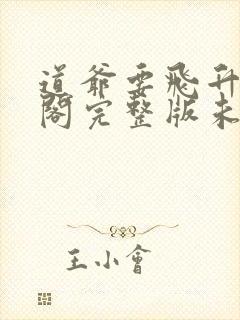 道爺要飛升
閣完整版未
王小會